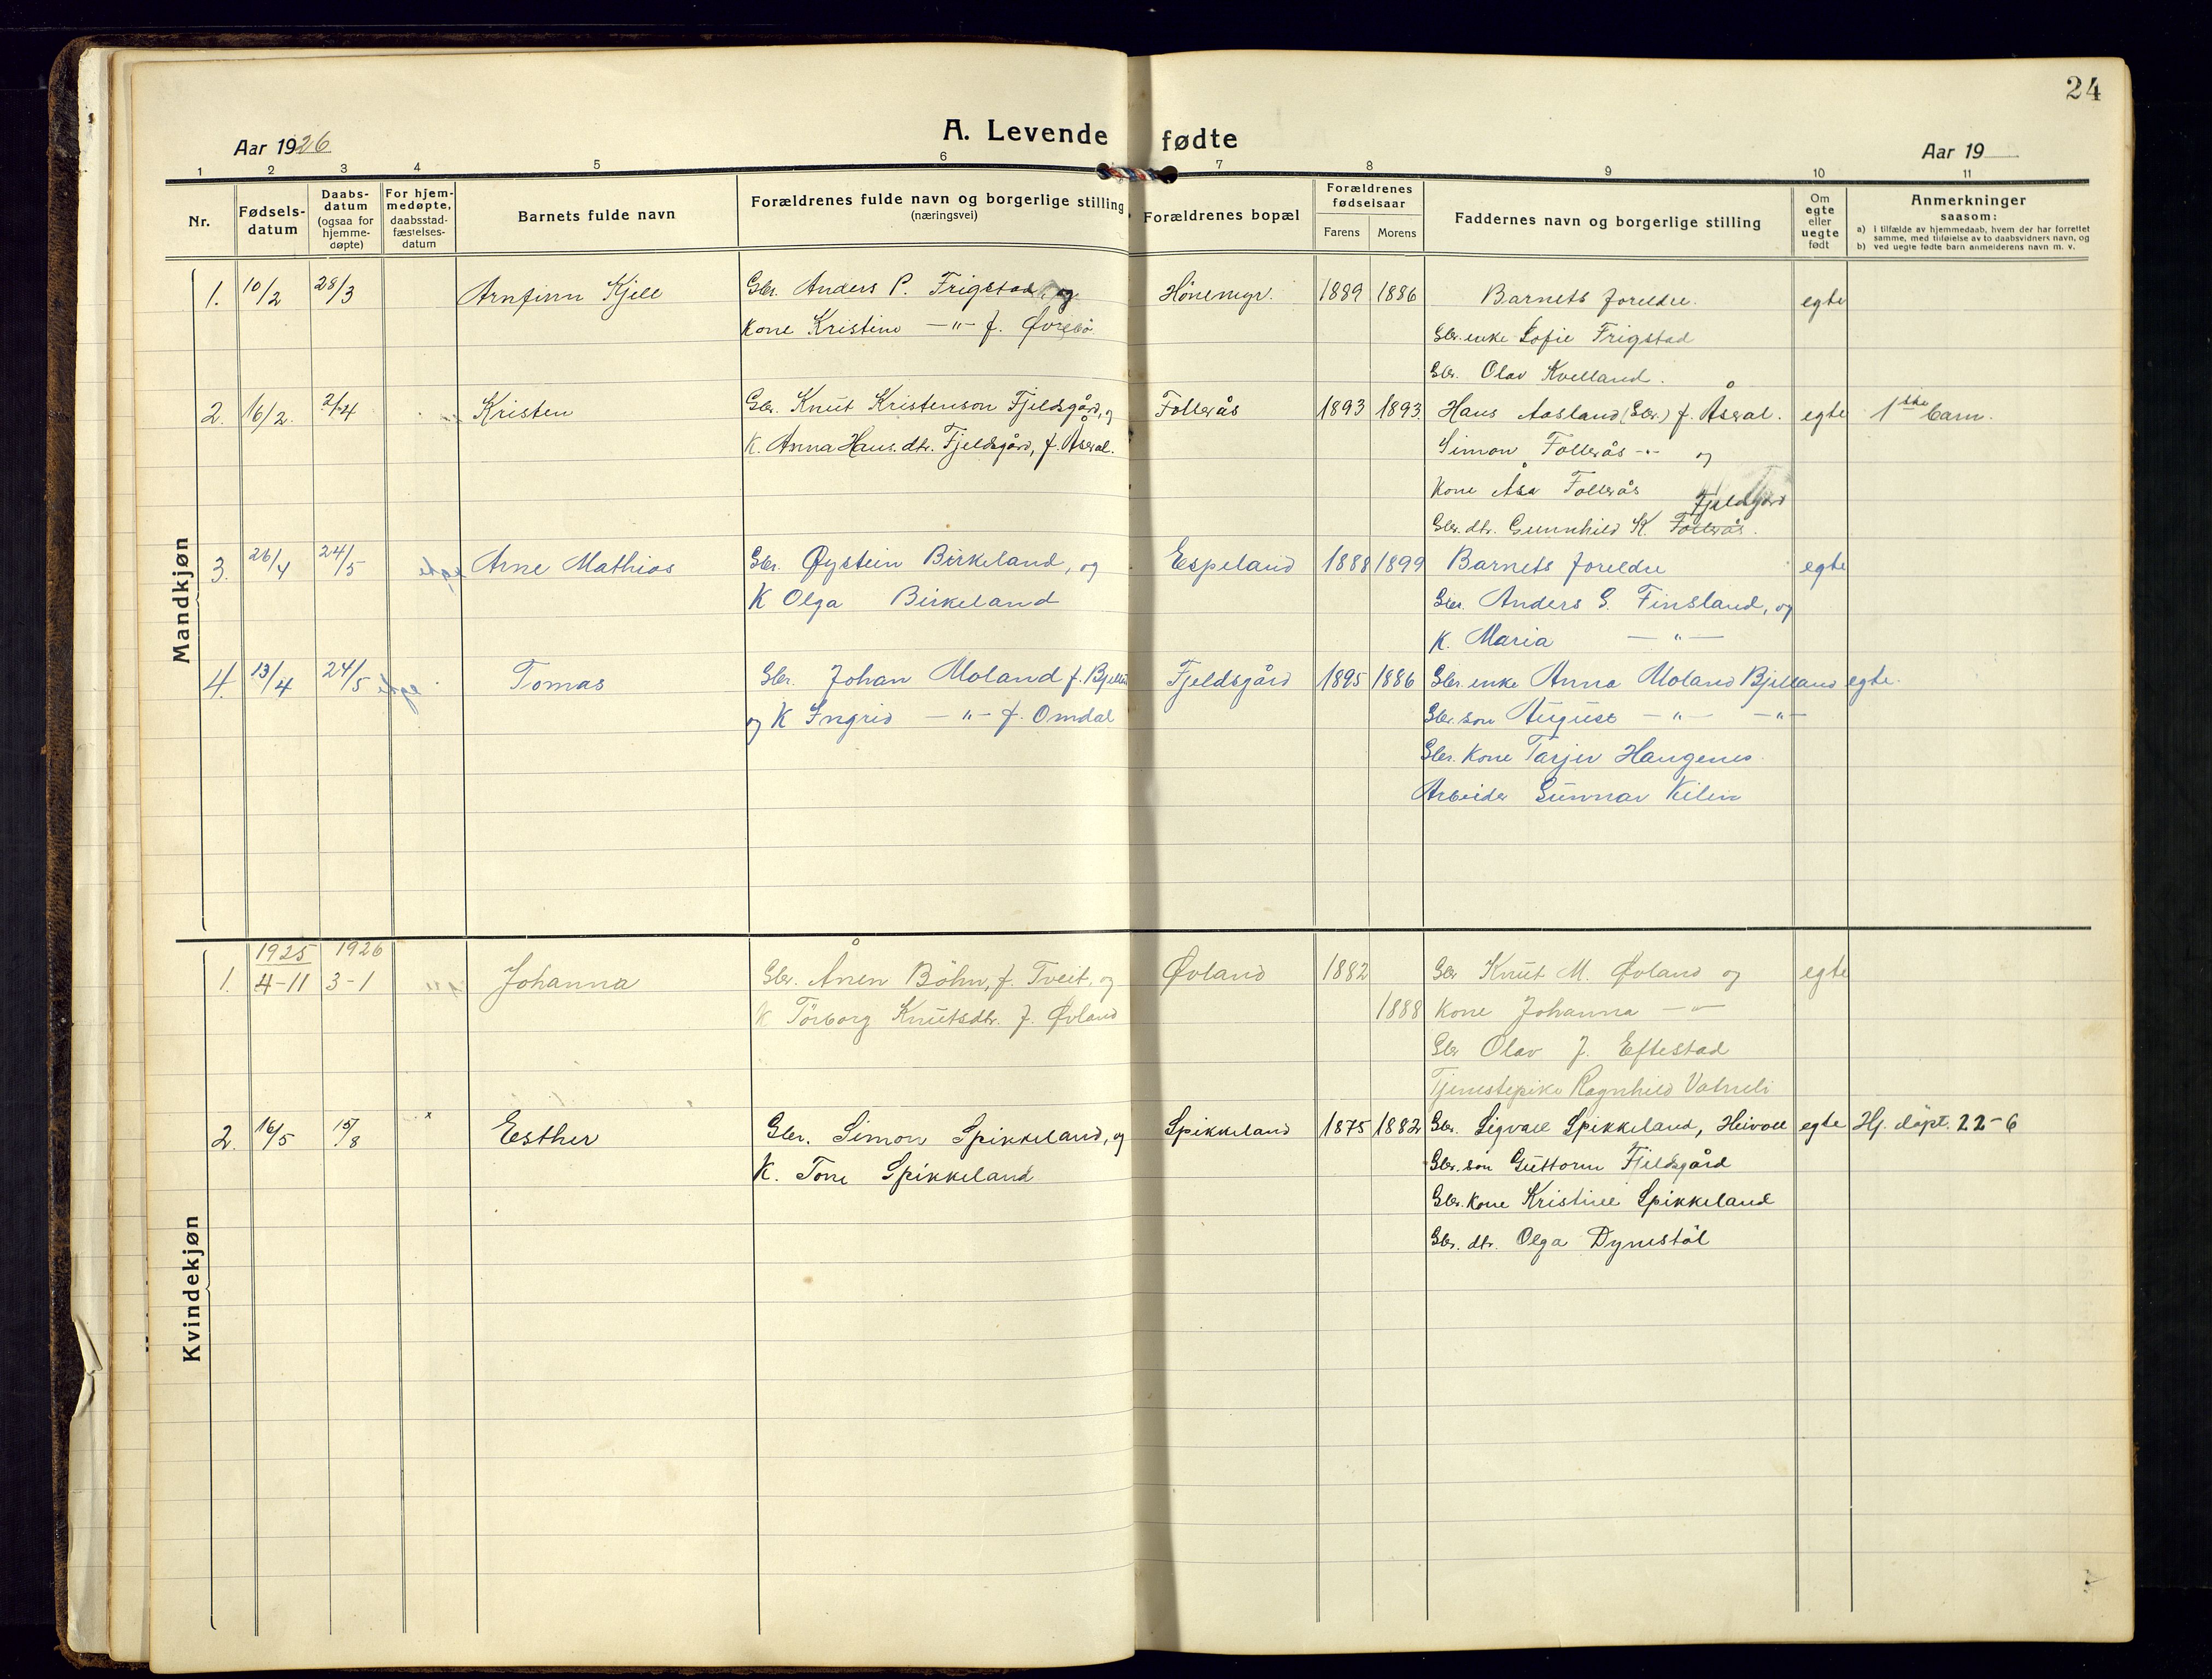 24
A. Levende fødte
Aar 1926
Aar 19
1 2 3 4 5 6 7 8 9 10 11
Nr.
Fødsels-
datum
Daabs-
datum
(ogsaa for
hjemme-
døpte)
For hjem-
medøpte,
daabsstad-
fæstelses-
datum
Barnets fulde navn
Forældrenes fulde navn og borgerlige stilling
(næringsvei)
Forældrenes bopæl
Forældrenes
fødselsaar
Farens Morens
Faddernes navn og borgerlige stilling
Om
egte
eller
uegte
født
Anmerkninger
saasom:
a) I tilfælde av hjemmedaab, hvem der har forrettet
samme, med tilføielse av to daabsvidners navn, og
b) ved uegte fødte barn anmelderens navn m. v.
Mandkjøn
1. 10/2 28/3 Arnfinn Kjell Gbr. Anders P. Frigstad og Hönemyr. 1889 1886 Barnets foreldre. egte
Kone Kristine —"— f. Øvrebö
Gbr. enke Sofie Frigstad
Gbr. Olav Kvelland.
2. 16/2. 2/4 Kristen Gbr. Knut Kristenson Fjeldsgård, og Follerås 1893 1893 Hans Aasland (Gbr.) f. Åseral. egte 1ste barn.
K. Anna Hans.dtr. Fjeldsgård, f. Åseral.
Simon Follerås -"- og
Kone Åsa Follerås
Fjeldsgård
Gbr. dtr. Gunnhild K. Follerås.
3. 26/4 24/5 Arne Mathias Gbr. Øystein Birkeland, og Espeland 1888 1899 Barnets foreldre egte
K Olga Birkeland
Gbr. Anders G. Finsland, og
K. Maria —"—
4. 13/4 24/5 Tomas Gbr. Johan Moland f. Bjelland Fjeldsgård 1895 1886 Gbr. enke Anna Moland Bjelland egte.
og K Ingrid —"— f. Omdal
Gbr. son August —"— —"—
Gbr. Kone Tarjer Haugenes
Arbeider Gunnar Kilen
Kvindekjøn
1925 1926
1. 4-11 3-1 Johanna Gbr. Ånen Böhn, f. Tveit, og Øvland 1882 Gbr Knut M. Øvland og egte
K Törborg Knutsdtr. f. Øvland 1888 Kone Johanna —"—
Gbr Olav J. Eftestad
Tjenestepike Ragnhild Vatneli
2. 16/5 15/8 x Esther Gbr. Simon Spikkeland, og Spikkeland 1875 1882 Gbr. Sigvall Spikkeland, Heivoll egte Hj. döpt. 22-6
K. Tone Spikkeland
Gbr. son Guttorm Fjeldsgård
Gbr. Kone Kristine Spikkeland
Gbr. dtr. Olga Dynestöl